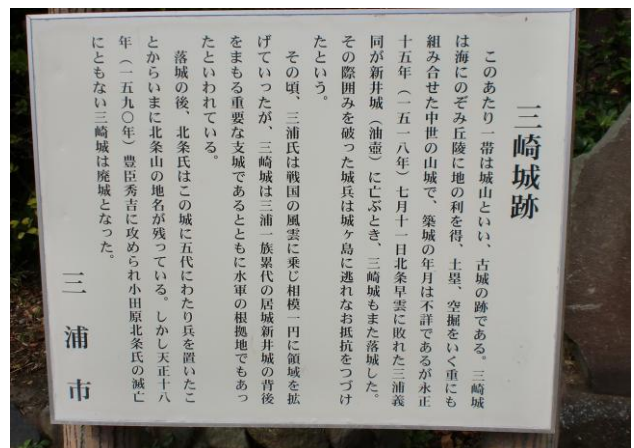 三崎城跡
このあたり一帯は城山といい、古城の跡である。三崎城
は海にのぞみ丘陵に地の利を得、土塁、空掘をいく重にも
組み合せた中世の山城で、築城の年月は不詳であるが永正
十五年（一五一八年）七月十一日北条早雲に敗れた三浦義
同が新井城（油壺）に亡ぶとき、三崎城もまた落城した。
その際囲みを破った城兵は城ヶ島に逃れなお抵抗をつづけ
たという。
その頃、三浦氏は戦国の風雲に乗じ相模一円に領域を拡
げていったが、三崎城は三浦一族累代の居城新井城の背後
をまもる重要な支城であるとともに水軍の根拠地でもあっ
たといわれている。
落城の後、北条氏はこの城に五代にわたり兵を置いたこ
とからいまに北条山の地名が残っている。しかし天正十八
年（一五九〇年）豊臣秀吉に攻められ小田原北条氏の滅亡
にともない三崎城は廃城となった。
三浦市